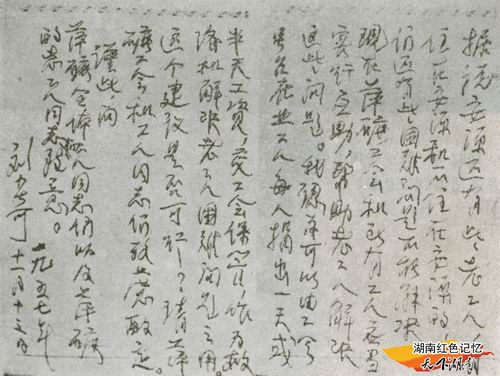 据说安源还有些老工人
住在安源和不住在安源的
仍还有些困难问题不能解决
现在萍矿工会和所有工人应当
实行互助,帮助老工人解决
这些问题。我提议可以由工会
号召在业工人每人捐出一天或
半天工资,交工会保管,作为救
济和解决老工人困难问题之用。
这个建议是否可行?请萍
矿工会和工人同志们考虑酌定。
谨此向
萍矿全体工人同志们以及萍矿
的老工人同志致意。
刘少奇 一九五七年
湖南红色记忆
天下潮